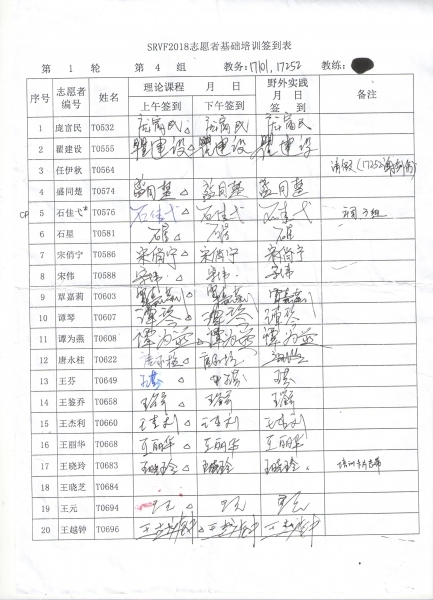 SRVF2018志愿者基础培训签到表
第 1 轮 第 4 组 教务：17101, 17252 教练：
序号 志愿者编号 姓名 理论课程 月 日 野外实践 月 日 备注
上午签到 下午签到 签 到
1 庞富民 T0532 庞富民 庞富民 庞富民
2 翟建设 T0555 翟建设 翟建设 翟建设
3 任伊秋 T0564
4 盛同楚 T0574
CP 5 石佳弋* T0576 石佳弋 石佳弋 石佳弋
6 石星 T0581 石星 石星 石星
7 宋俏宁 T0586 宋俏宁 宋俏宁 宋俏宁
8 宋伟 T0588 宋伟 宋伟 宋伟
9 覃嘉莉 T0603 覃嘉莉 覃嘉莉 覃嘉莉
10 谭琴 T0607 谭琴 谭琴 谭琴
11 谭为燕 T0608 谭为燕 谭为燕 谭为燕
12 唐永柱 T0622
13 王芬 T0649 王芬 王芬 王芬
14 王鉴乔 T0658
15 王杰利 T0660 王杰利 王杰利 王杰利
16 王丽华 T0668 王丽华 王丽华 王丽华
17 王晓玲 T0683 王晓玲 王晓玲 王晓玲
18 王晓芝 T0684
19 王元 T0694 王元 王元 王元
20 王越钟 T0696 王越钟 王越钟 王越钟